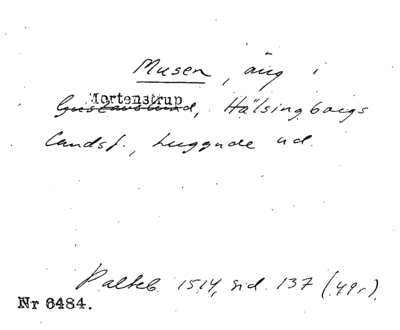 Musen, äng i
Mortenstrup
Gustavslund, Hälsingborgs
landsf., Luggude hd.
Palteb. 1514, sid. 137 (49r).
Nr 6484.